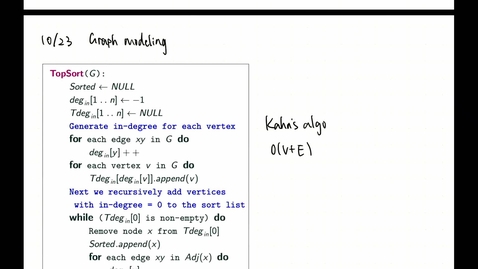 10/23 Graph modeling
TopSort(G):
Sorted ← NULL
deg_in[1 .. n] ← −1
Tdeg_in[1 .. n] ← NULL
Generate in-degree for each vertex
for each edge xy in G do
deg_in[y] ++
for each vertex v in G do
Tdeg_in[deg_in[v]].append(v)
Next we recursively add vertices
with in-degree = 0 to the sort list
while (Tdeg_in[0] is non-empty) do
Remove node x from Tdeg_in[0]
Sorted.append(x)
for each edge xy in Adj(x) do
Kahn's algo
O(V+E)